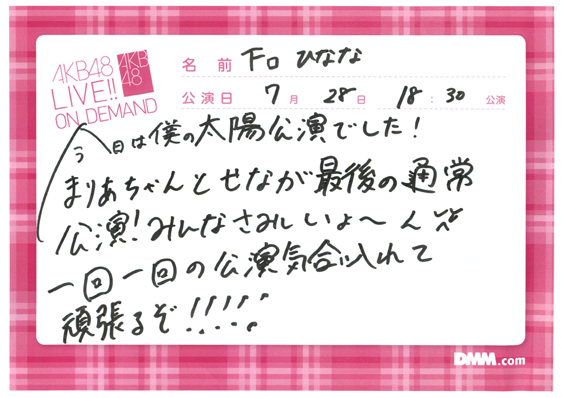 AKB48
LIVE!!
ON DEMAND
AKB
48
名 前 下口 ひなな
公演日 7 月 28 日 18 : 30 公演
今日は僕の太陽公演でした!
まりあちゃんとせなが最後の通常
公演!みんなさみしいよ〜ん
一回一回の公演気合い入れて
頑張るぞ!!!!!
DMM.com